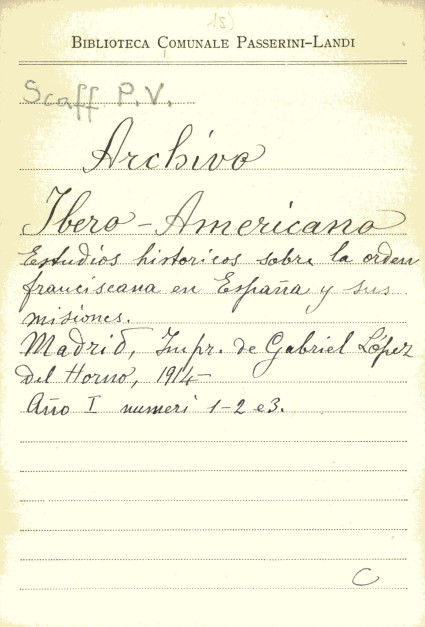 15)
BIBLIOTECA COMUNALE PASSERINI-LANDI
Scaff P.V.
Archivo
Ibero-Americano
Estudios historicos sobre la orden
franciscana en España y sus
misiones.
Madrid, Impr. de Gabriel López
del Horno, 1914-
Año I numeri 1-2 e 3.
C